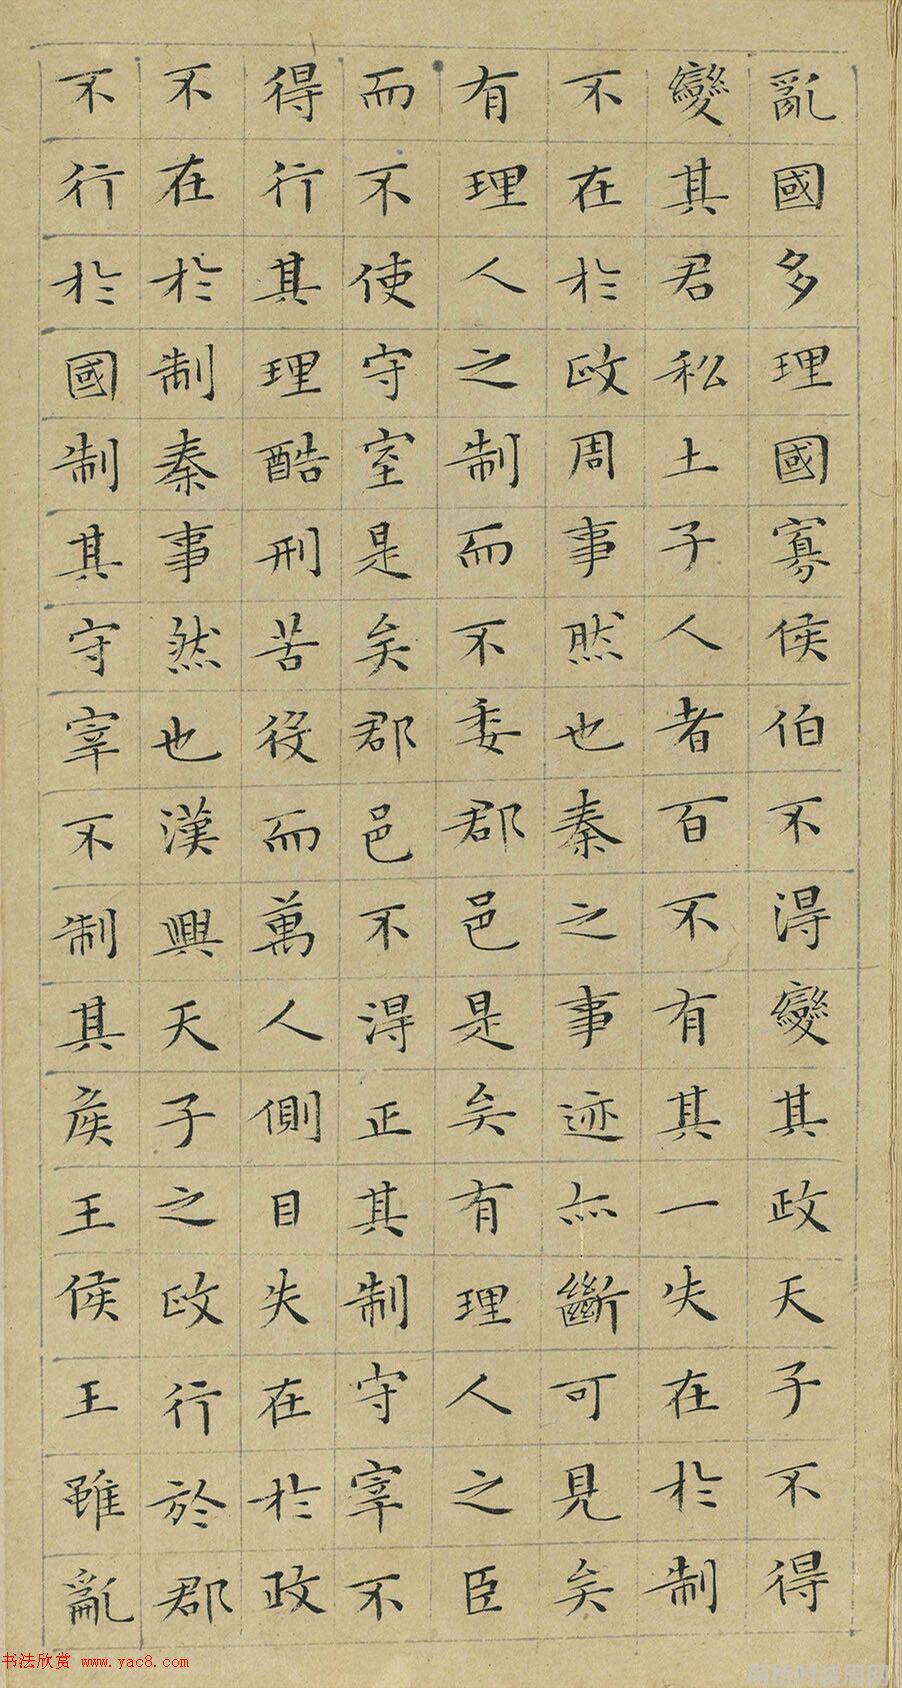 亂國多理國寡侯伯不得變其政天子不得
變其君私土子人者百不有其一失在於制
不在於政周事然也秦之事迹亦斷可見矣
有理人之制而不委郡邑是矣有理人之臣
而不使守室是矣郡邑不得正其制守宰不
得行其理酷刑苦役而萬人側目失在於政
不在於制秦事然也漢興天子之政行於郡
不行於國制其守宰不制其侯王侯王雖亂
书法欣赏 www.yac8.com